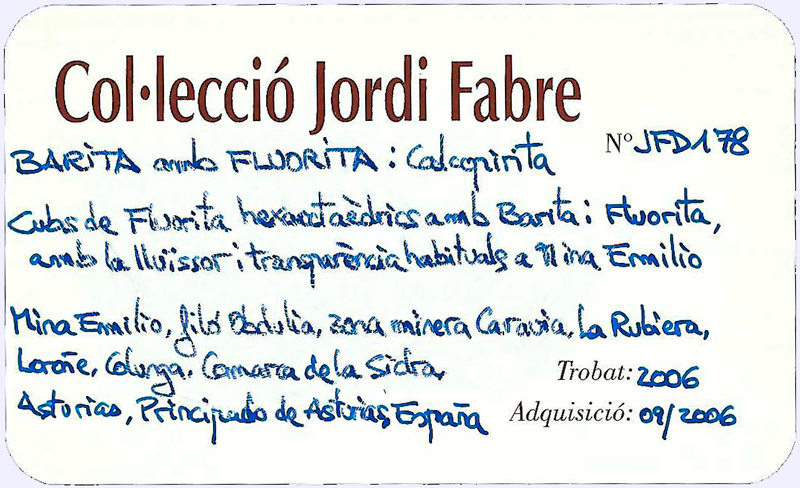 Col·lecció Jordi Fabre
Nº JFD178
BARITA amb FLUORITA i Calcopirita
Cubs de Fluorita hexaoctaèdrics amb Barita i Fluorita,
amb la lluïssor i transparència habituals a Mina Emilio
Mina Emilio, filó Obdulia, zona minera Caravia, La Rubiera,
Loroñe, Colunga, Comarca de la Sidra,
Trobat: 2006
Asturias, Principado de Asturias, España
Adquisició: 09/2006